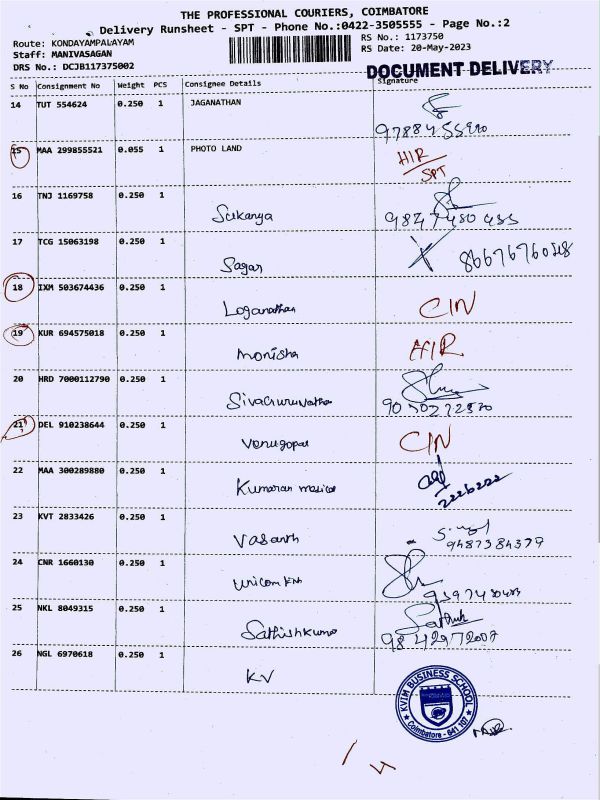 THE PROFESSIONAL COURIERS, COIMBATORE
Delivery Runsheet - SPT - Phone No.:0422-3505555 - Page No.:2
Route: KONDAYAMPALAYAM
RS No.: 1173750
Staff: MANIVASAGAN
RS Date: 20-May-2023
DRS No.: DCJB117375002
DOCUMENT DELIVERY
S No Consignment No Weight PCS Consignee Details Signature
14 TUT 554624 0.250 1 JAGANATHAN
15 MAA 299855521 0.055 1 PHOTO LAND
SPT
16 TNJ 1169758 0.250 1
Sukanya
9847480455
17 TCG 15063198 0.250 1
Sagar
18 IXM 503674436 0.250 1
Loganathan CIN
19 KUR 694575018 0.250 1
Monisha
20 HRD 7000112790 0.250 1
21 DEL 910238644 0.250 1
Venugopal CIN
22 MAA 300289880 0.250 1
Kumaran
2226222
23 KVT 2833426 0.250 1
Vasanth
9487384379
24 CNR 1660130 0.250 1
25 NKL 8049315 0.250 1
Sathishkumar
9842972007
26 NGL 6970618 0.250 1
KV
KVIM BUSINESS SCHOOL
Coimbatore - 641 107